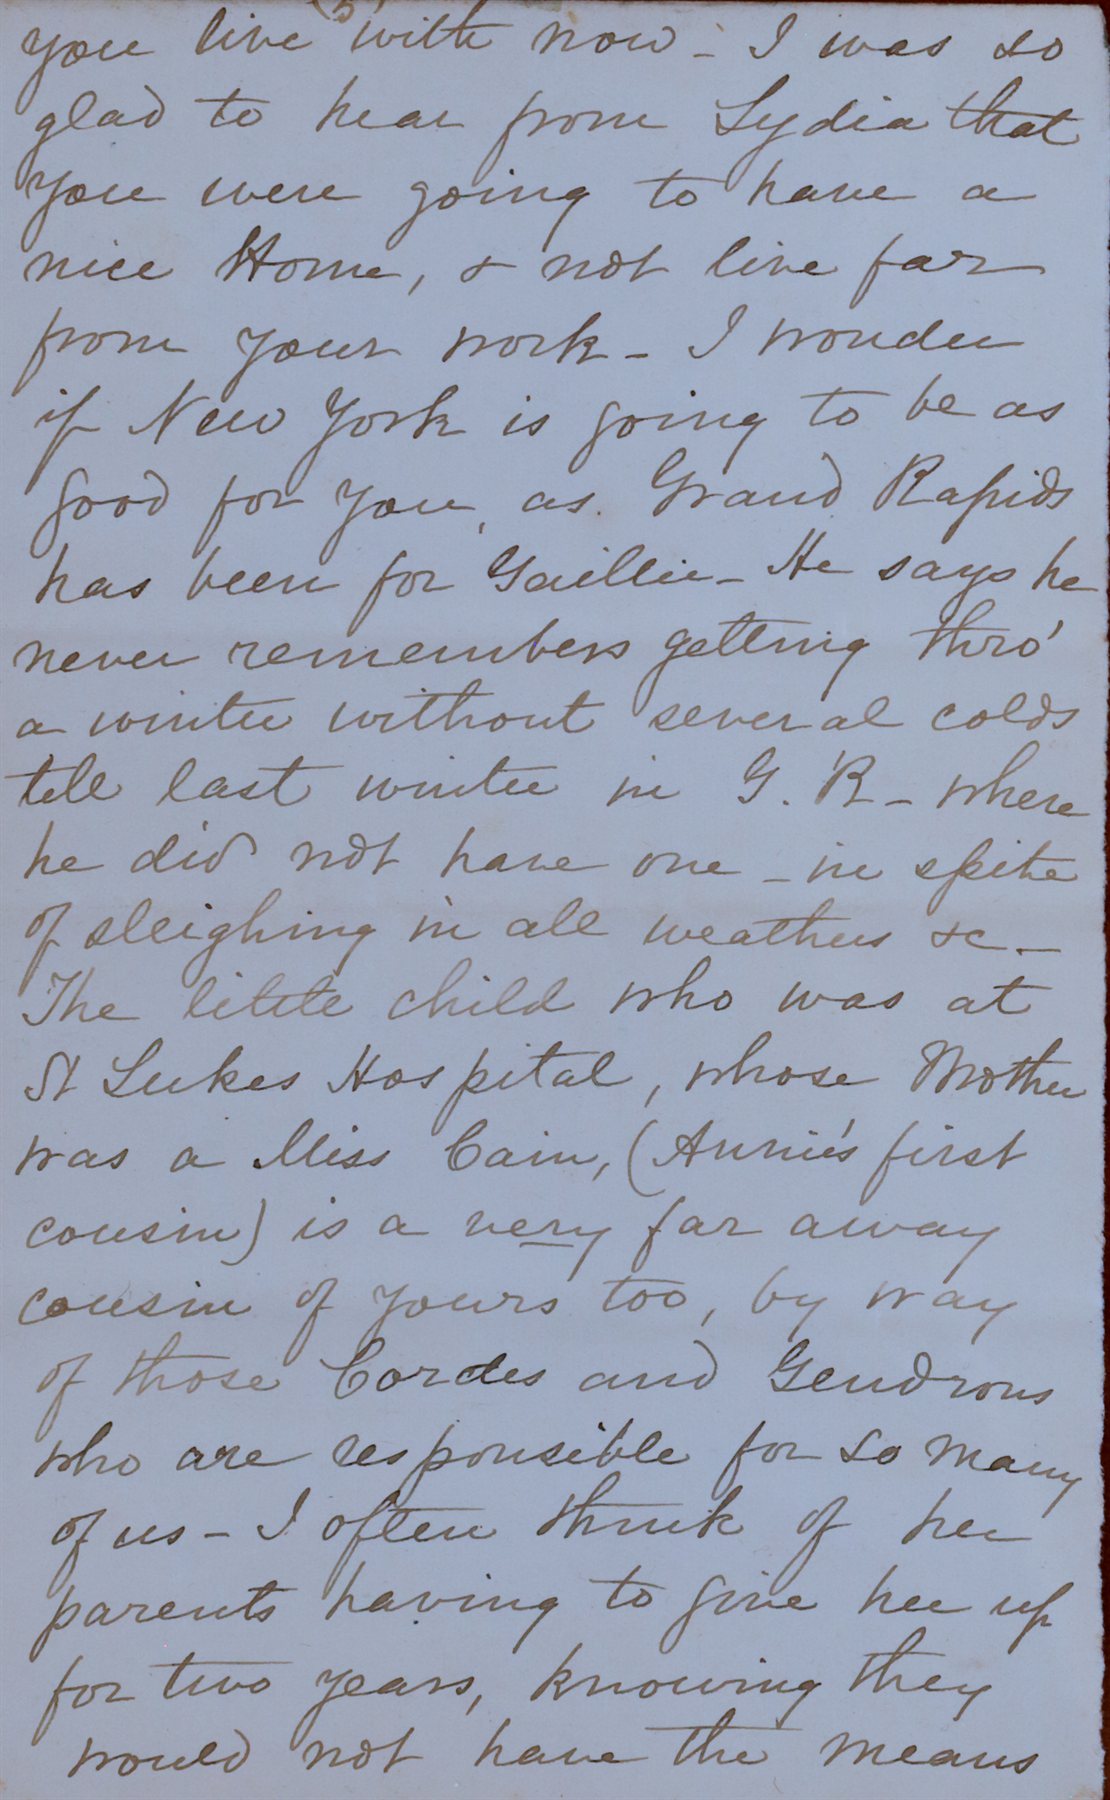 (5)
you live with now - I was so
glad to hear from Lydia that
you were going to have a
nice Home, & not live far
from your work - I wonder
if New York is going to be as
good for you, as Grand Rapids
has been for Gaillie - He says he
never remembers getting thro'
a winter without several colds
till last winter in G. R - where
he did not have one - in spite
of sleighing in all weathers &c -
The little child who was at
St Lukes Hospital, whose Mother
was a Miss Cain, (Annie's first
cousin) is a very far away
cousin of yours too, by way
of those Cordes and Gendrons
who are responsible for so many
of us - I often think of her
parents having to give her up
for two years, knowing they
would not have the means